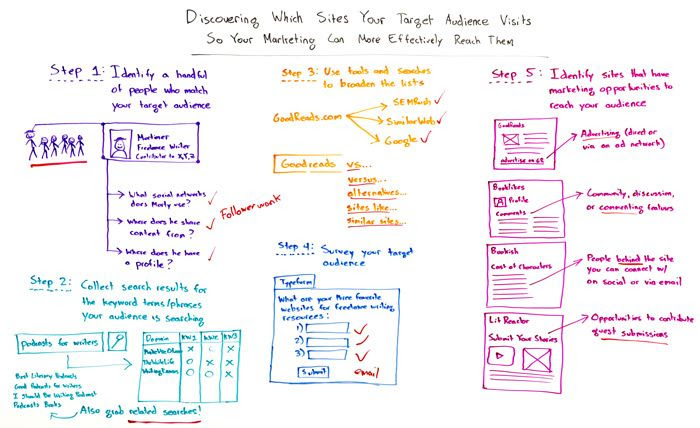 Discovering Which Sites Your Target Audience Visits
So Your Marketing Can More Effectively Reach Them
Step 1: Identify a handful
of people who match
your target audience
Mortimer
Freelance Writer
Contributor to X,Y,Z
What social networks
does Morty use?
Where does he share
content from?
Where does he have
a profile?
Followerwonk
Step 2: Collect search results for
the keyword terms/phrases
your audience is searching
podcasts for writers
Best Literary Podcasts
Good Podcasts for Writers
I Should Be Writing Podcast
Podcasts Books
Also grab related searches!
Domain KW1 KW2 KW3
TheWriteLife
Step 3: Use tools and searches
to broaden the lists
GoodReads.com
SEMRush
SimilarWeb
Google
Goodreads vs...
versus...
alternatives...
sites like...
similar sites...
Step 4: Survey your target
audience
Typeform
What are your three favorite
websites for freelance writing
resources:
1)
2)
3)
Submit
email
Step 5: Identify sites that have
marketing opportunities to
reach your audience
GoodReads
advertise on GR
Advertising (direct or
via an ad network)
Booklikes
Profile
Comments
Community, discussion,
or commenting features
Bookish
Cast of Characters
People behind the site
you can connect w/
on social or via email
Lit Reactor
Submit Your Stories
Opportunities to contribute
guest submissions